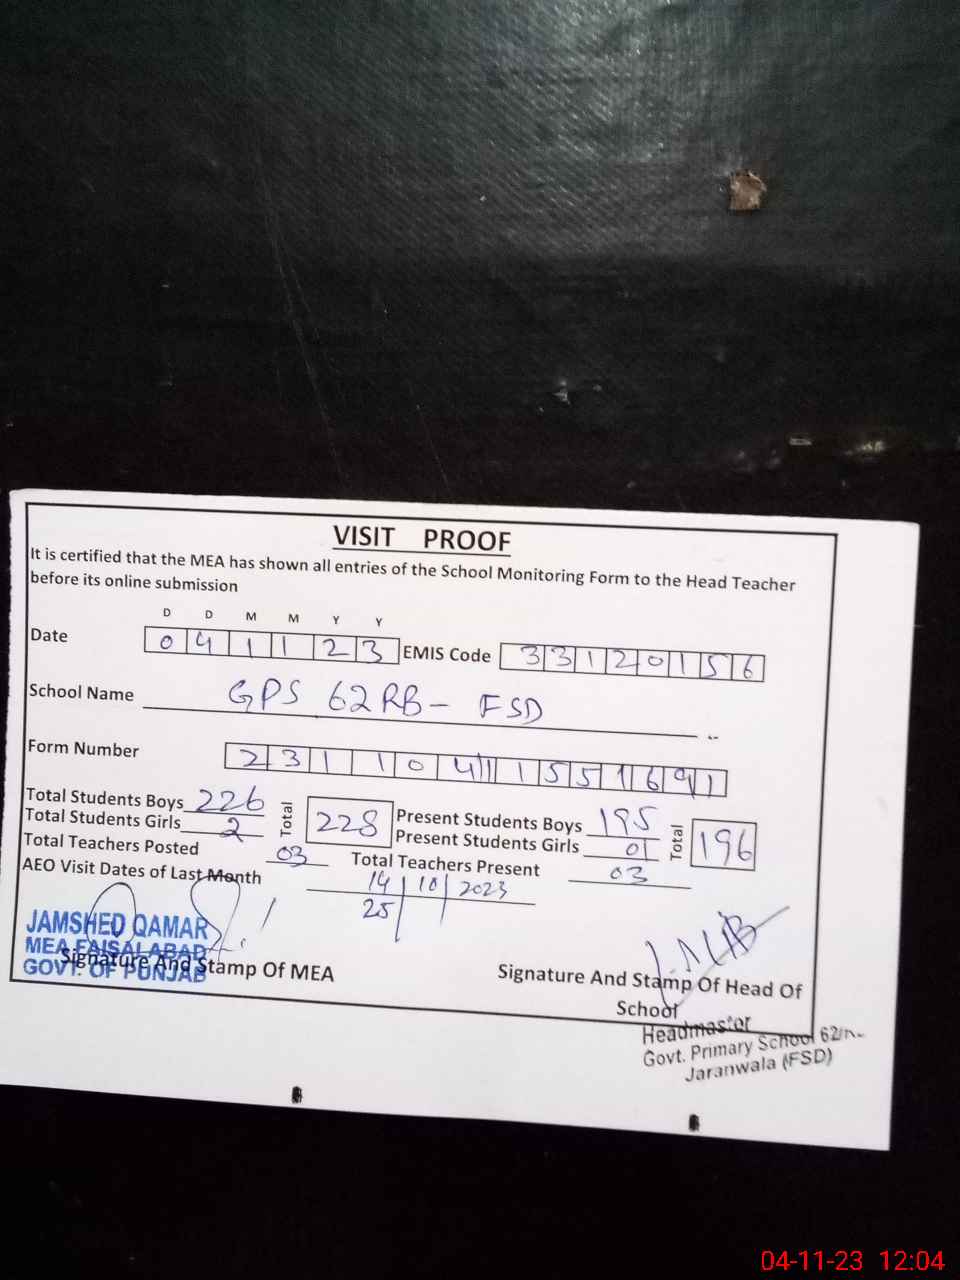 VISIT PROOF
It is certified that the MEA has shown all entries of the School Monitoring Form to the Head Teacher
before its online submission
D D M M Y Y
Date 0 4 1 1 2 3 EMIS Code 3 3 1 2 0 1 5 6
School Name GPS 62 RB - FSD
Form Number
Total Students Boys 226 Total 228 Present Students Boys 195 Total 196
Total Students Girls 2 Present Students Girls 01
Total Teachers Posted 03 Total Teachers Present 03
AEO Visit Dates of Last Month 14 | 10 | 2023
25
JAMSHED QAMAR
MEA FAISALABAD
GOVT. OF PUNJAB
Signature And Stamp Of MEA
Signature And Stamp Of Head Of
School
Headmaster
Govt. Primary School
Jaranwala (FSD)
04-11-23 12:04